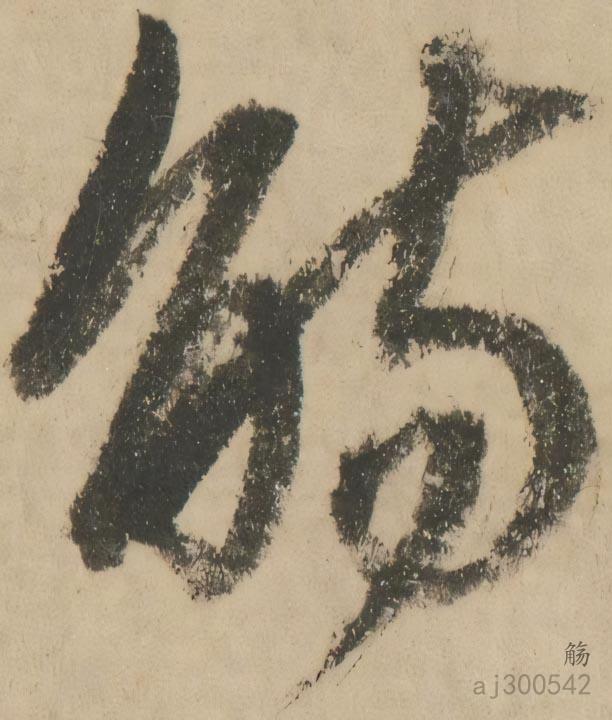 觞
aj300542